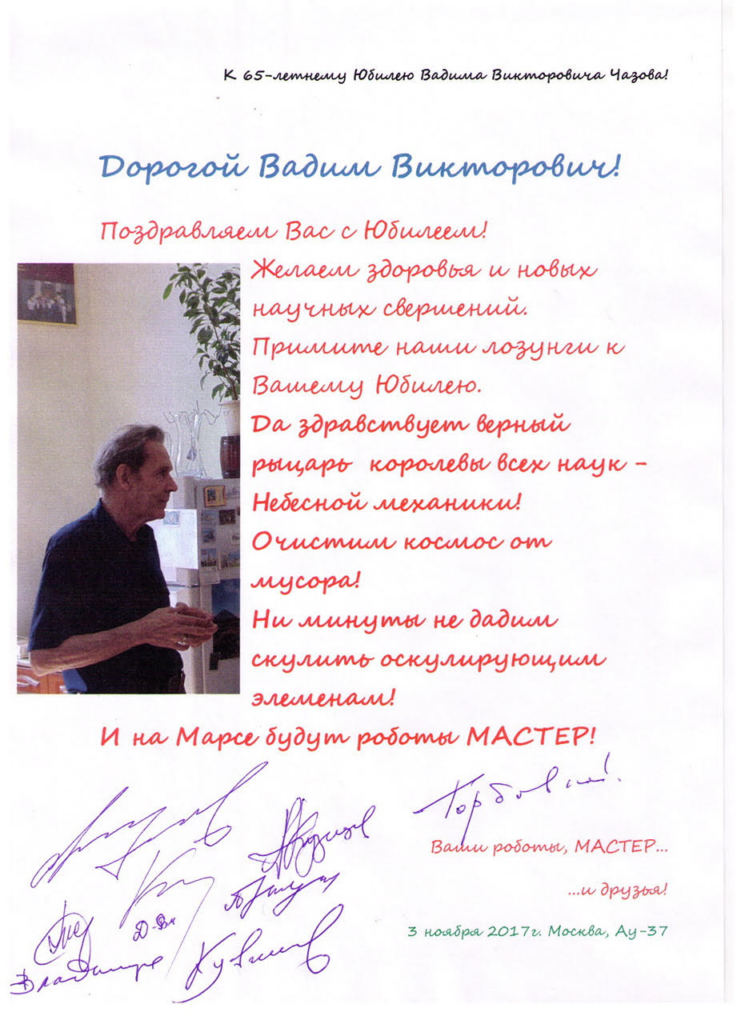 К 65-летнему Юбилею Вадима Викторовича Чазова!
Дорогой Вадим Викторович!
Поздравляем Вас с Юбилеем!
Желаем здоровья и новых
научных свершений.
Примите наши лозунги к
Вашему Юбилею.
Да здравствует верный
рыцарь королевы всех наук –
Небесной механики!
Очистим космос от
мусора!
Ни минуты не дадим
скулить оскулирующим
элеменам!
И на Марсе будут роботы МАСТЕР!
Ваши роботы, МАСТЕР...
...и друзья!
3 ноября 2017г. Москва, Ау-37
Владимир